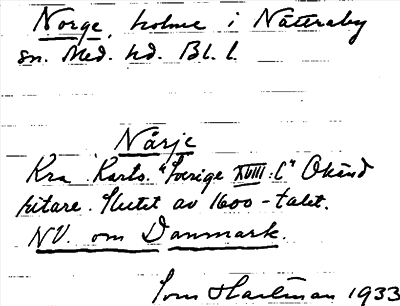 Norge, holme i Nättraby
sn. Med. hd. Bl. l.
Närje
Kra Karts. "Sverige XVIII:C" Okänd
ritare. Slutet av 1600-talet.
NV. om Danmark.
Hartman 1933